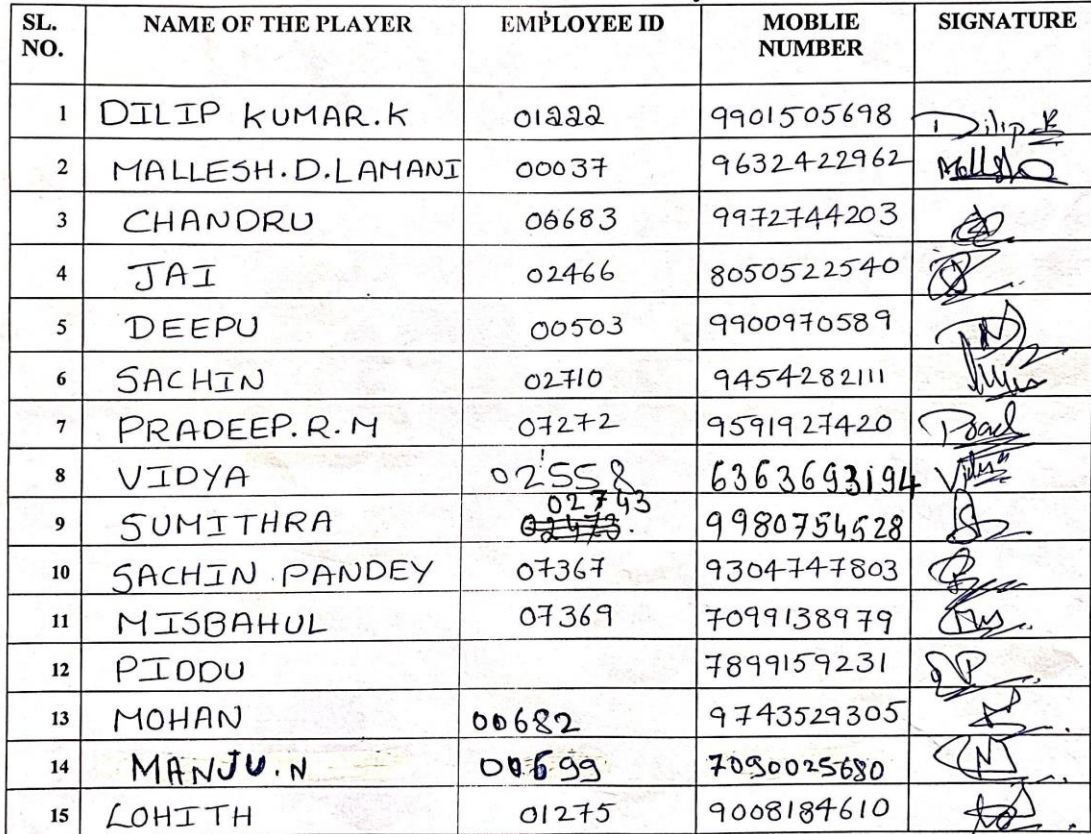 SL. NO. NAME OF THE PLAYER EMPLOYEE ID MOBLIE NUMBER SIGNATURE
1 DILIP KUMAR.K 01222 9901505698 Dilip.K
2 MALLESH.D.LAMANI 00037 9632422962
3 CHANDRU 00683 9972744203
4 JAI 02466 8050522540
5 DEEPU 00503 9900970589
6 SACHIN 02710 9454282111
7 PRADEEP.R.M 07272 9591927420
8 VIDYA 02558 6363693194
9 SUMITHRA 02743 9980754528
10 SACHIN PANDEY 07367 9304747803
11 MISBAHUL 07369 7099138979
12 PIDDU 7899159231
13 MOHAN 00682 9743529305
14 MANJU.N 00699 7090025680
15 LOHITH 01275 9008184610